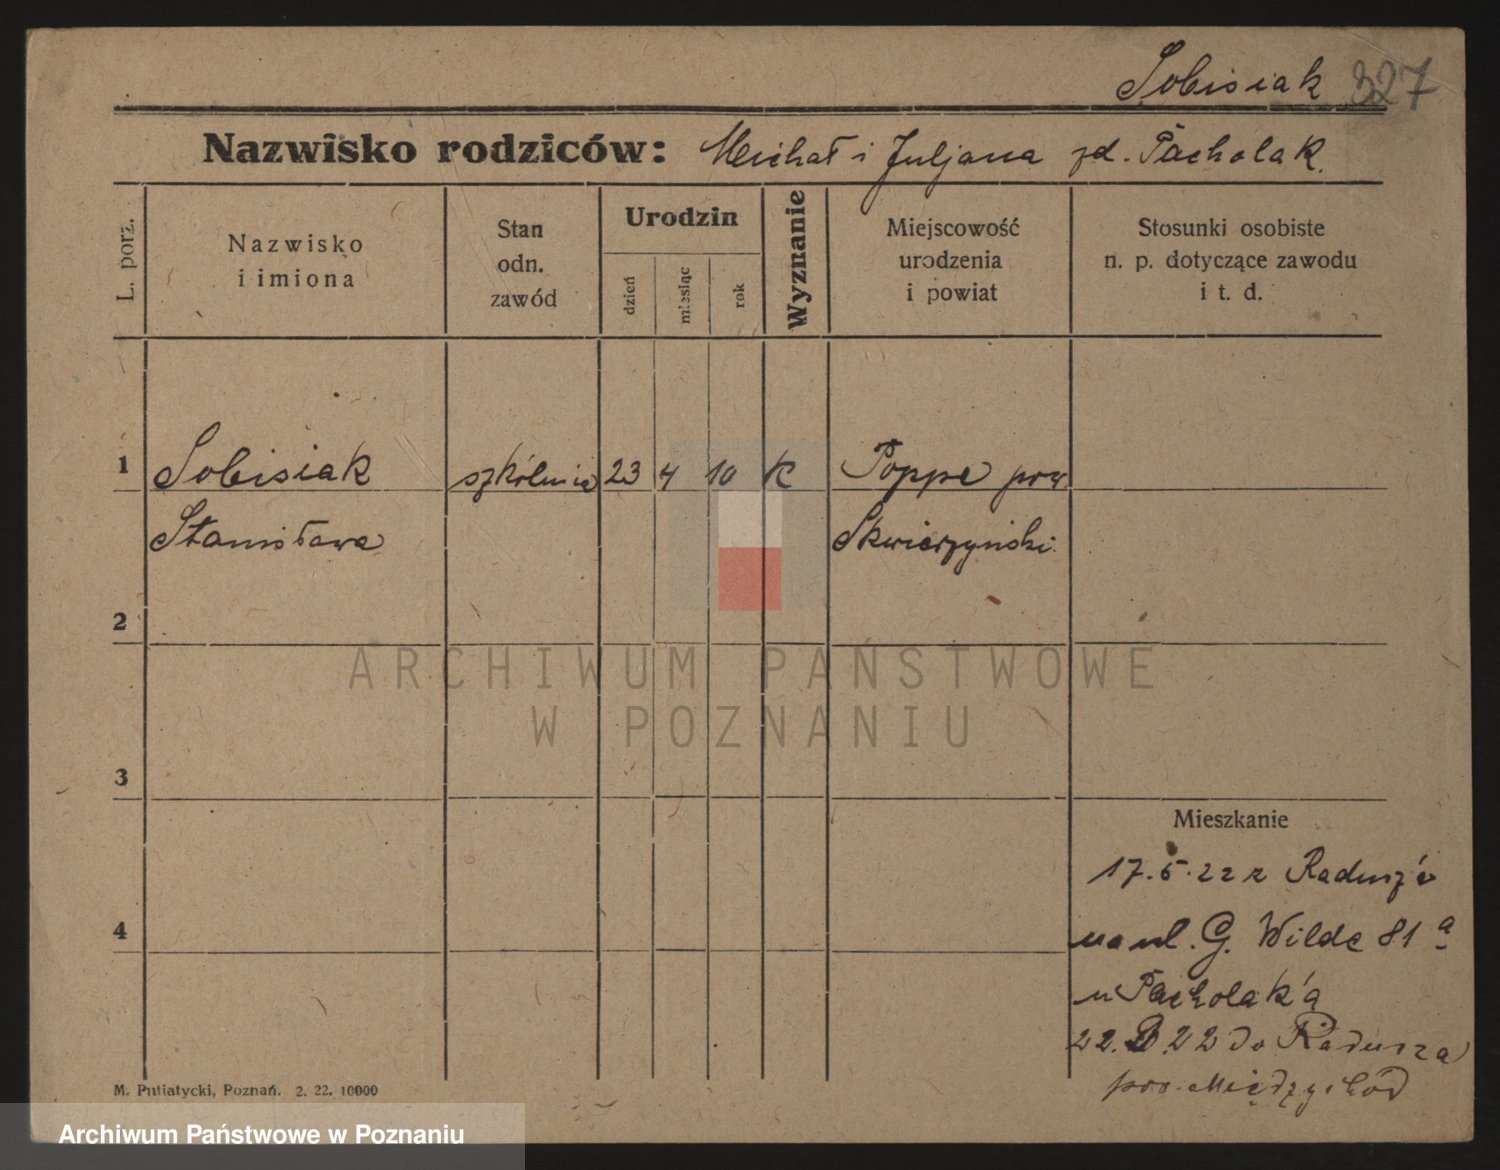 Sobisiak 327
Nazwisko rodziców: Michał i Juljana zd. Pacholak.
L. porz.
Nazwisko
i imiona
Stan
odn.
zawód
Urodzin
dzień
miesiąc
rok
Wyznanie
Miejscowość
urodzenia
i powiat
Stosunki osobiste
n. p. dotyczące zawodu
i t. d.
1 Sobisiak szkólnia 23 4 10 K Poppe pow
Stanisława Skwierzyński.
2
ARCHIWUM PAŃSTWOWE
W POZNANIU
3
Mieszkanie
17.5.22 z Radusz'a
4
na ul. G. Wilde 81 a
u Pacholak'a
22. 22 do Radusza
pow. Międzychód
M. Putiatycki, Poznań. 2. 22. 10000
Archiwum Państwowe w Poznaniu